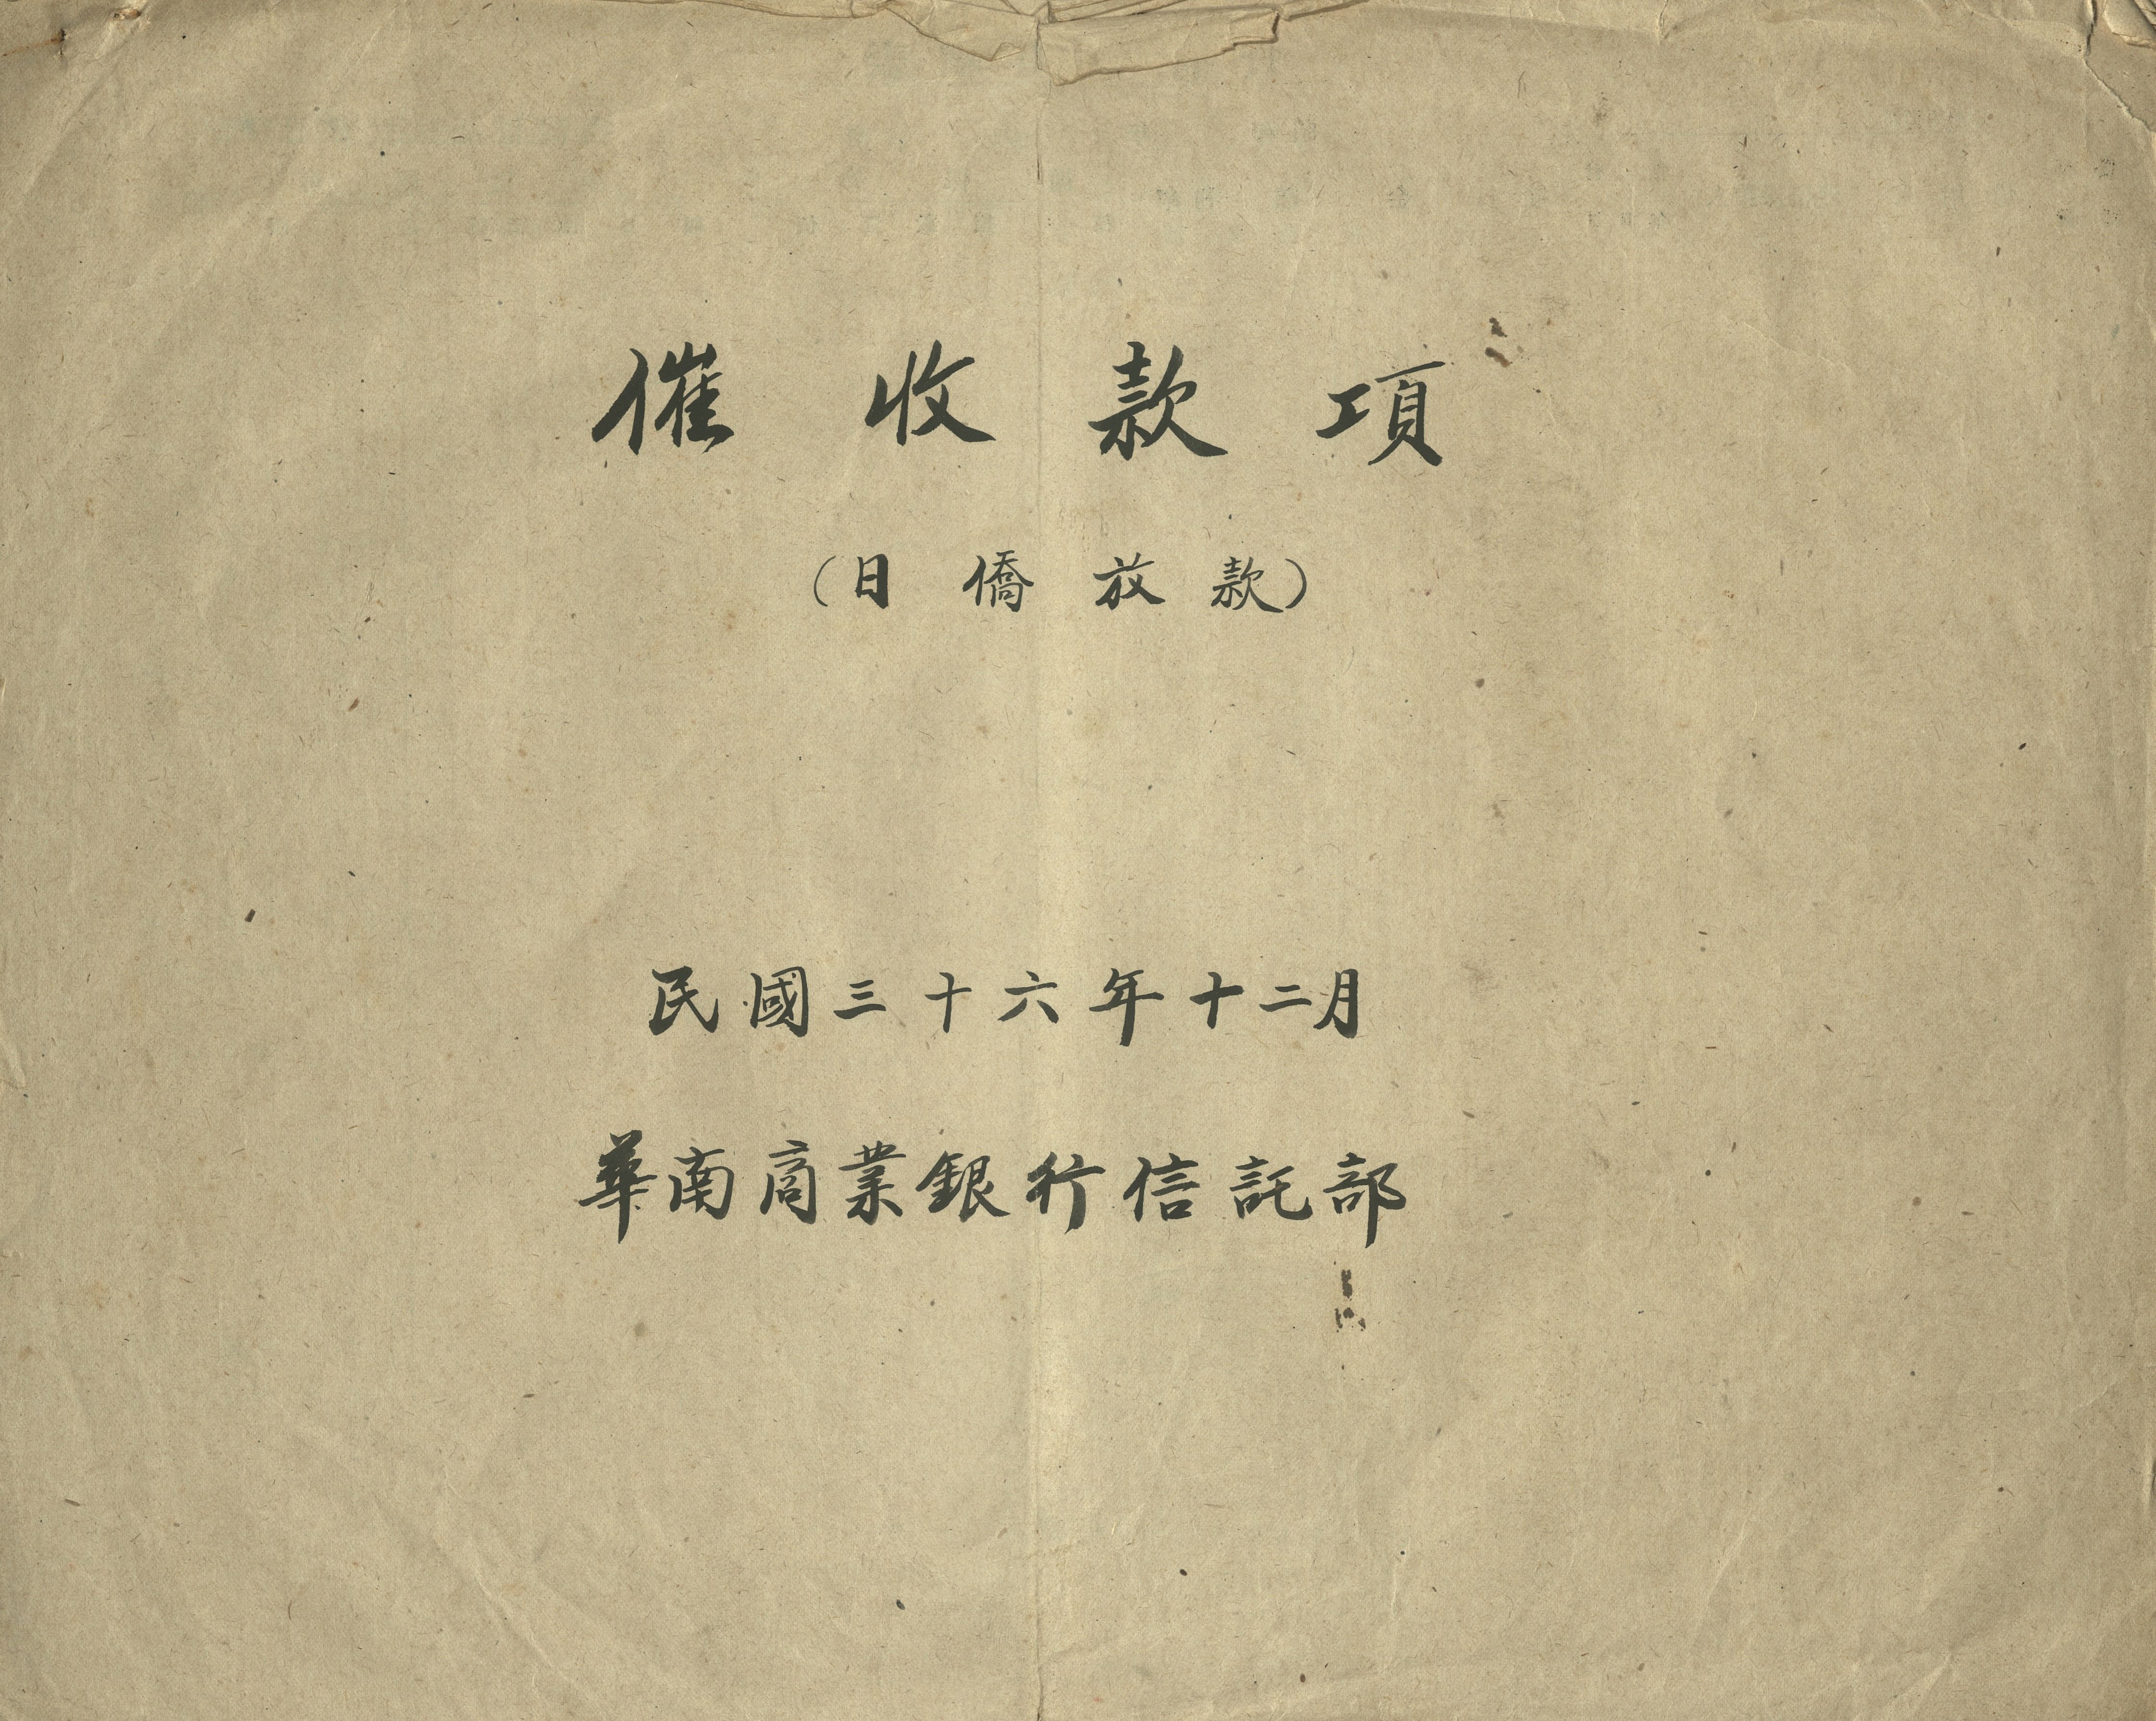 催收款項
(日僑放款)
民國三十六年十二月
華南商業銀行信託部